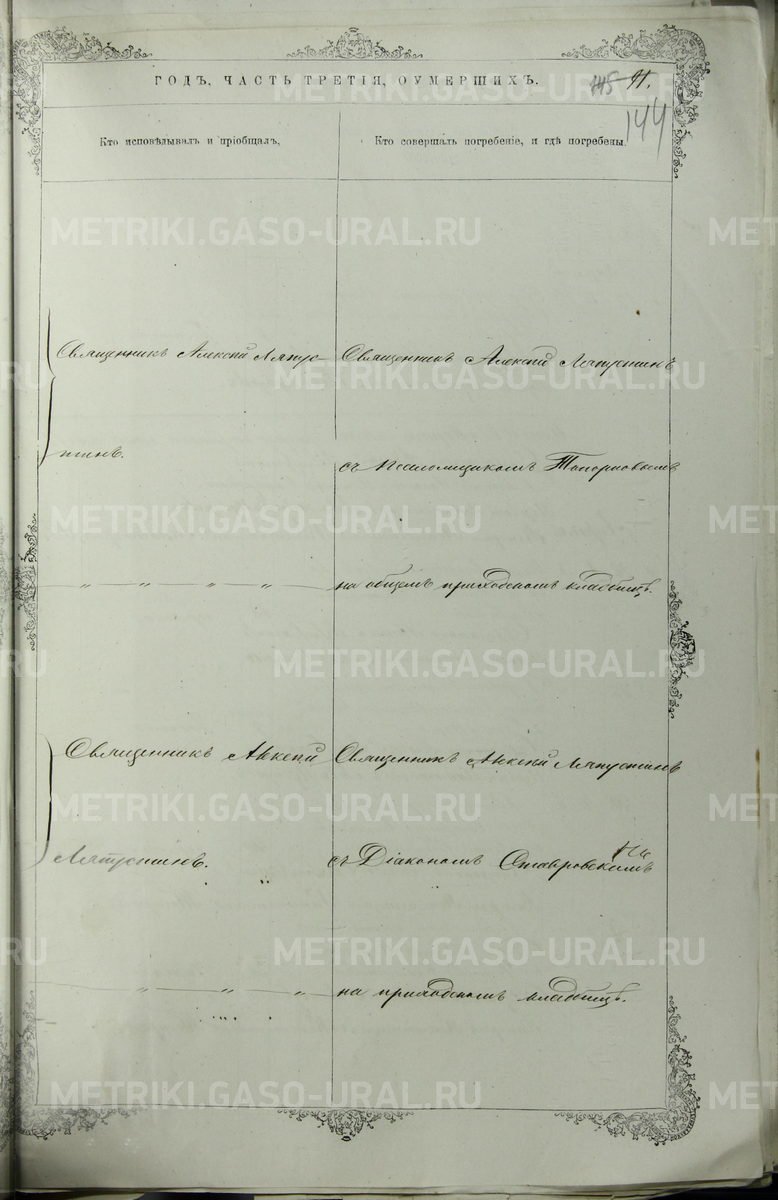 ГОДЪ, ЧАСТЬ ТРЕТІЯ, ОУМЕРШИХЪ.
145 91.
144
Кто исповѣдывалъ и пріобщалъ,
Кто совершалъ погребеніе, и гдѣ погребены.
Священникъ Алексій Ляпус-
Священникъ Алексій Ляпустинъ
тинъ.
съ Псаломщикомъ Топорковымъ
на общемъ приходскомъ кладбищѣ.
Священникъ Алексій
Священникъ Алексій Ляпустинъ
Ляпустинъ.
съ Діакономъ Ставровскимъ
на приходскомъ кладбищѣ.
METRIKI.GASO-URAL.RU